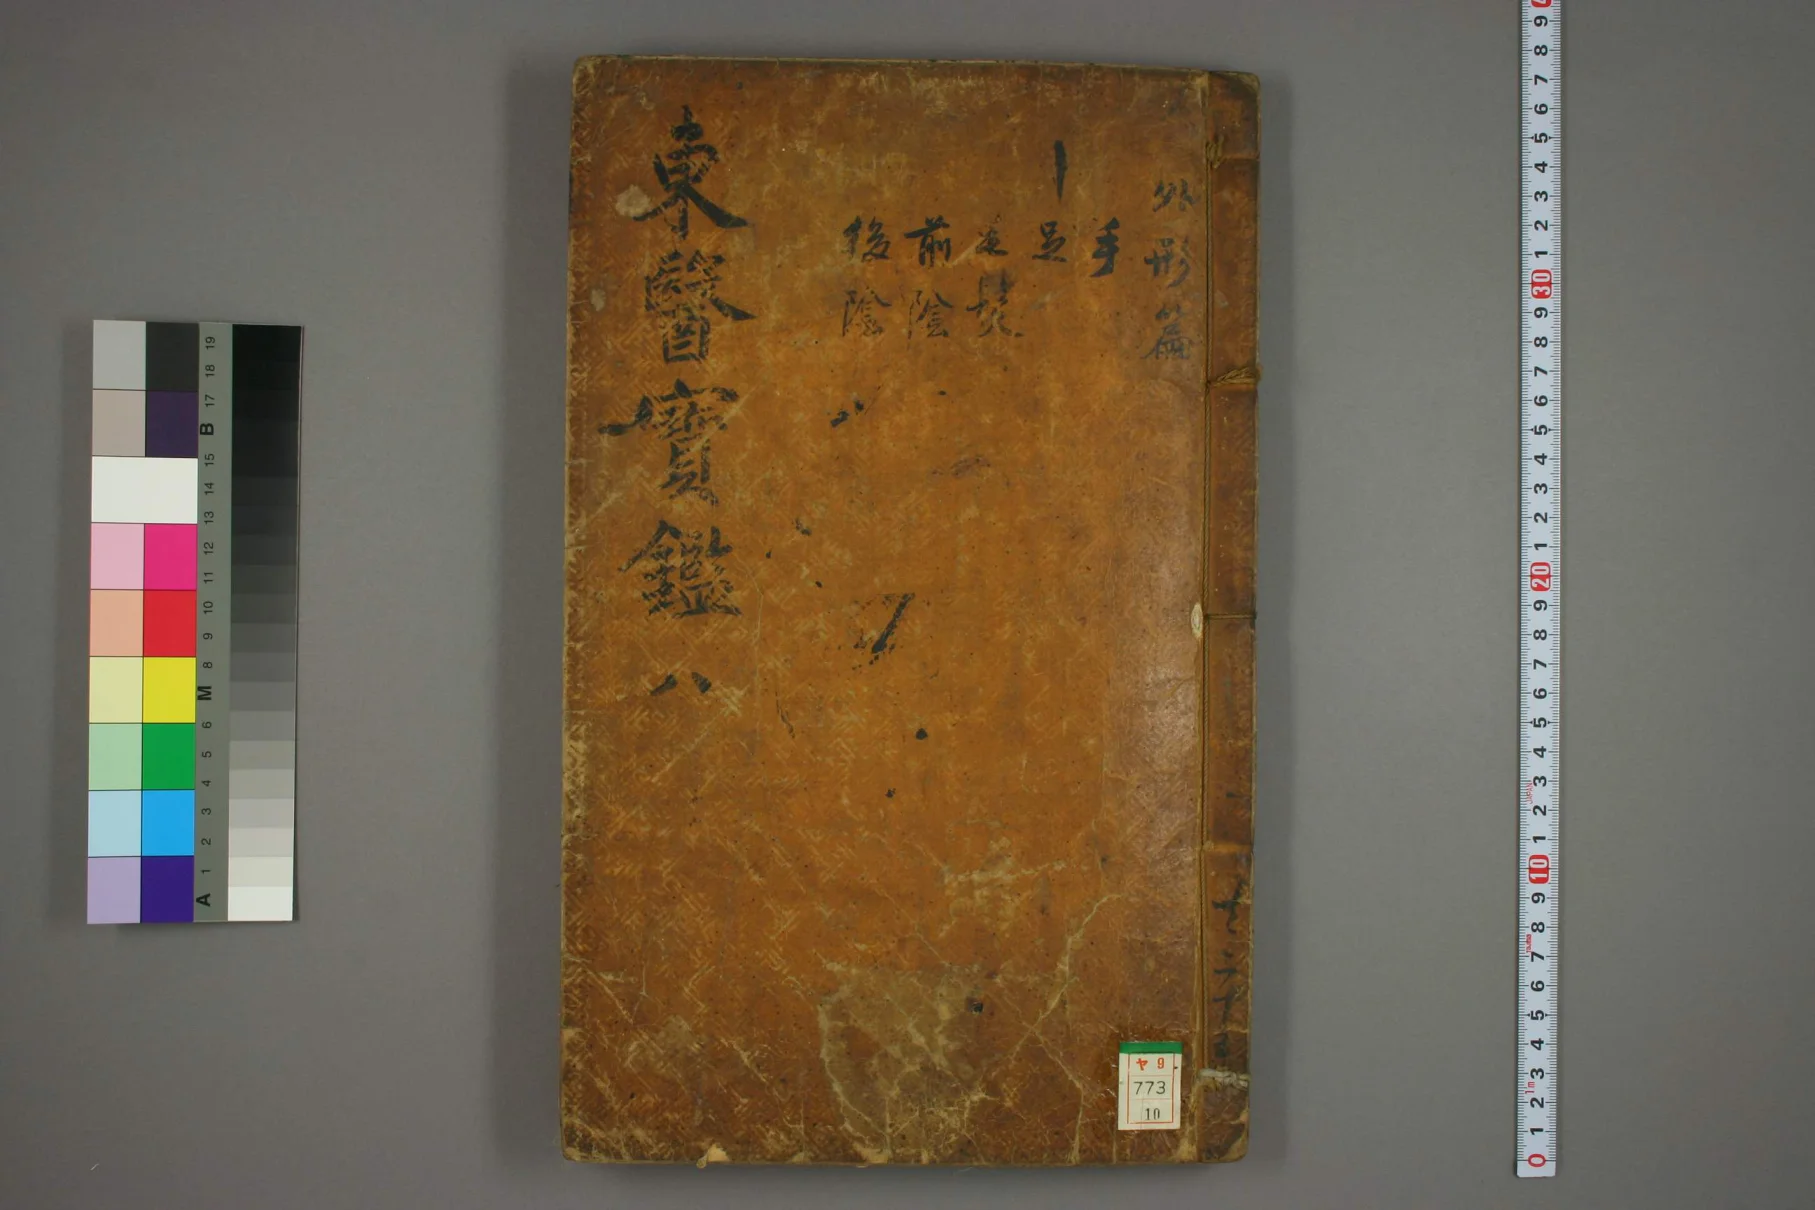 外形篇
手
足
毛髮
前陰
後陰
東醫寶鑑 八
共二十五
ヤ 9
773
10
A 1 2 3 4 5 6 M 8 9 10 11 12 13 14 15 B 17 18 19
0 1 2 3 4 5 6 7 8 9 10 1 2 3 4 5 6 7 8 9 20 1 2 3 4 5 6 7 8 9 30 1 2 3 4 5 6 7 8 9
1m
JAPAN